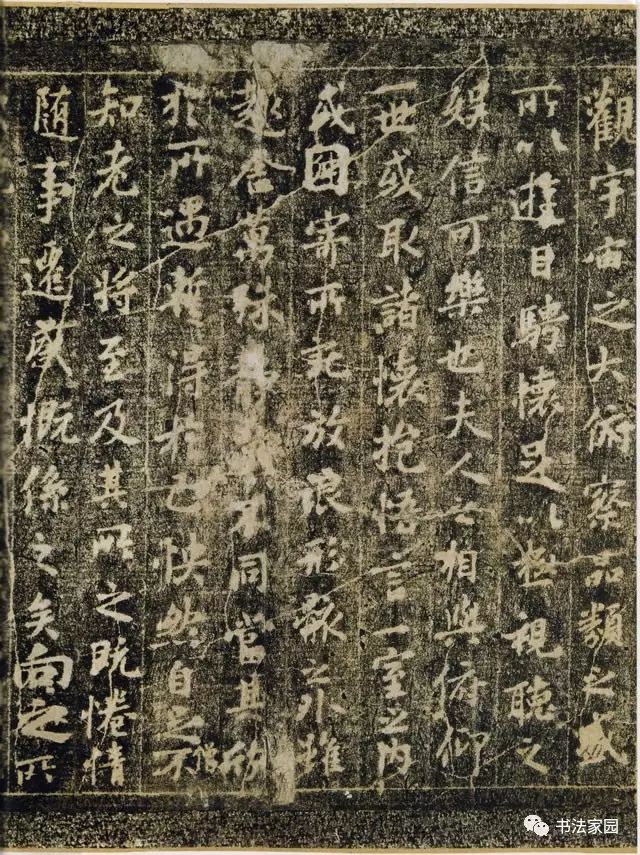 觀宇宙之大俯察品類之盛
所以遊目騁懷足以極視聽之
娛信可樂也夫人之相與俯仰
一世或取諸懷抱悟言一室之內
或因寄所託放浪形骸之外雖
趣舍萬殊靜躁不同當其欣
於所遇暫得於己怏然自足不
僧
知老之將至及其所之既惓情
隨事遷感慨係之矣向之所
书法家园